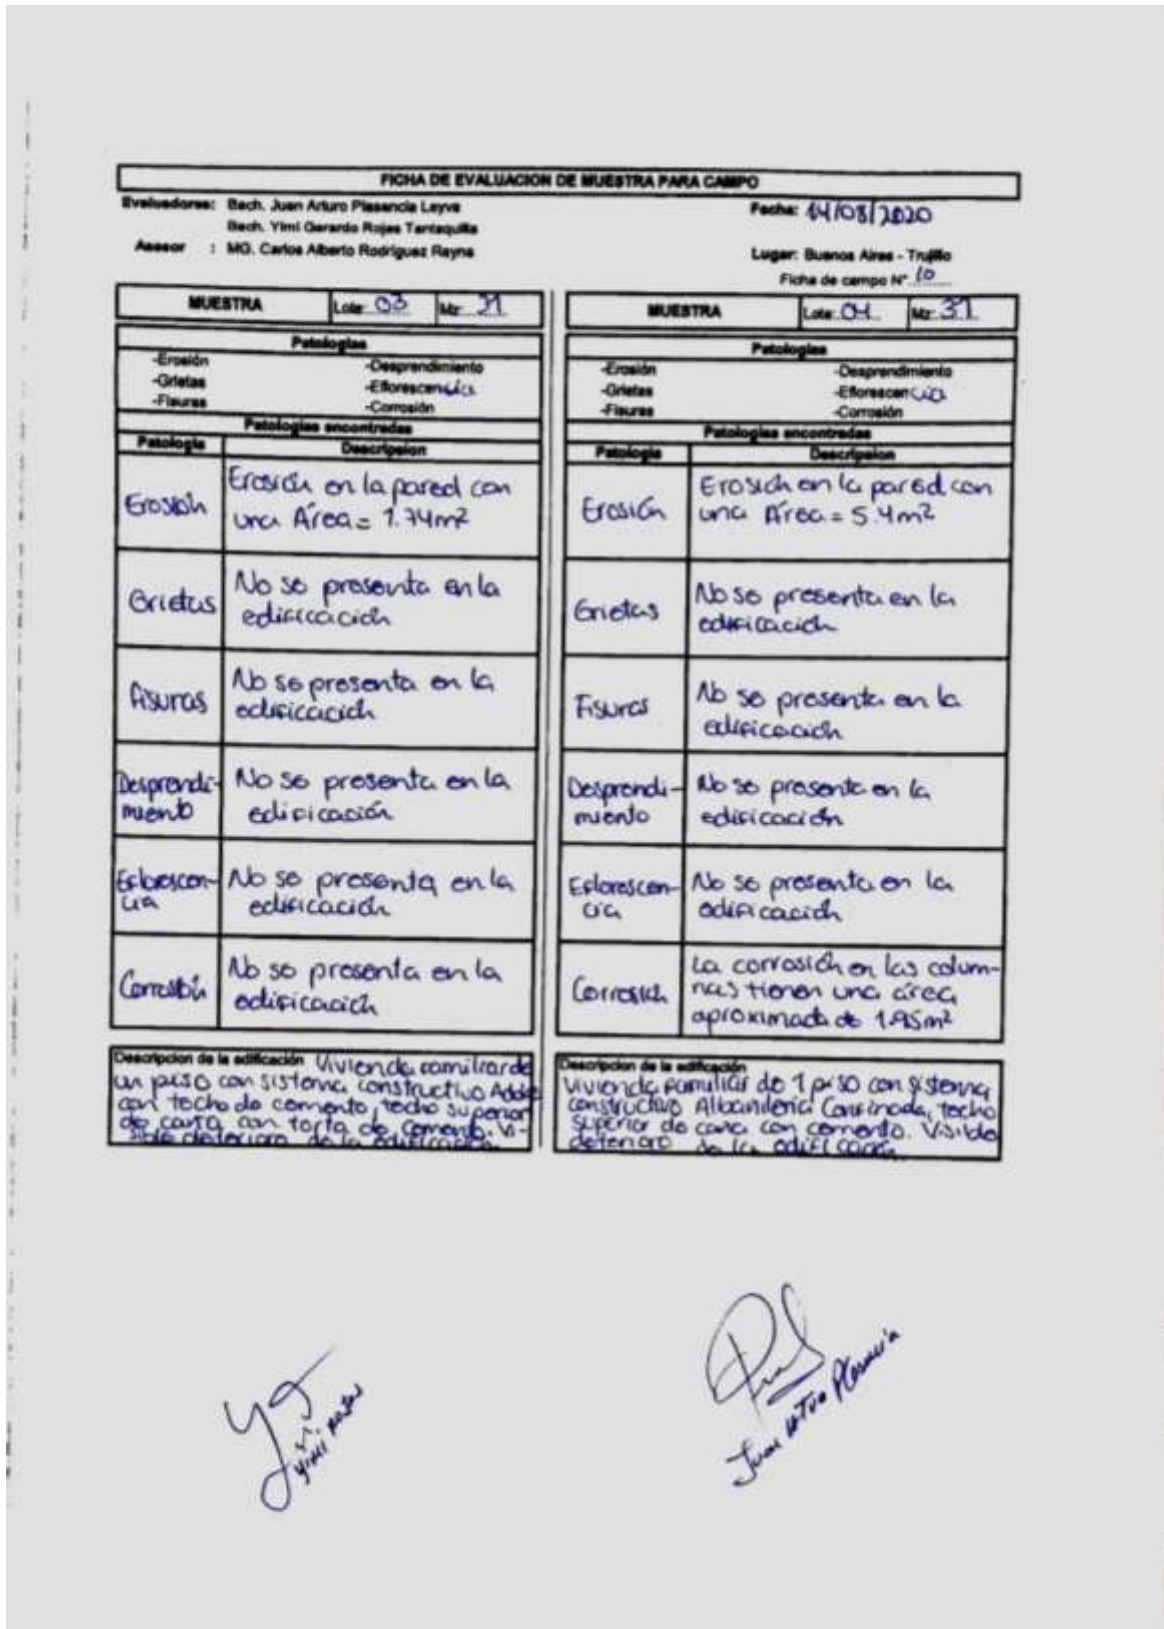 FICHA DE EVALUACION DE MUESTRA PARA CAMPO
Evaluadores: Bach. Juan Arturo Plasencia Leyva
Fecha: 14/08/2020
Bach. Yimi Gerardo Rojas Tantaquilla
Asesor : MG. Carlos Alberto Rodríguez Reyna
Lugar: Buenos Aires - Trujillo
Ficha de campo N° 10
MUESTRA Lote: 03 Mz: 31
Patologías
-Erosión -Desprendimiento
-Grietas -Eflorescencia
-Fisuras -Corrosión
Patologías encontradas
Patología Descripsion
Erosión
Erosión en la pared con
una Área = 1.74m²
Grietas
No se presenta en la
edificación
Fisuras
No se presenta en la
edificación
Desprendi-
miento
No se presenta en la
edificación
Eflorescen-
cia
No se presenta en la
edificación
Corrosión
No se presenta en la
edificación
Descripcion de la edificación Vivienda familiar de
un piso con sistema constructivo Adobe
con techo de cemento, techo superior
de caña con torta de cemento. Vi-
sible deterioro de la edificación.
MUESTRA Lote: 04 Mz: 31
Patologías
-Erosión -Desprendimiento
-Grietas -Eflorescencia
-Fisuras -Corrosión
Patologías encontradas
Patología Descripsion
Erosión
Erosión en la pared con
una Área = 5.4m²
Grietas
No se presenta en la
edificación
Fisuras
No se presenta en la
edificación
Desprendi-
miento
No se presenta en la
edificación
Eflorescen-
cia
No se presenta en la
edificación
Corrosión
La corrosión en las colum-
nas tienen una área
aproximada de 1.95m²
Descripcion de la edificación
Vivienda familiar de 1 piso con sistema
constructivo Albanileria Confinada, techo
superior de caña con cemento. Visible
deterioro de la edificación.
Yimi Rojas
Juan Arturo Plasencia